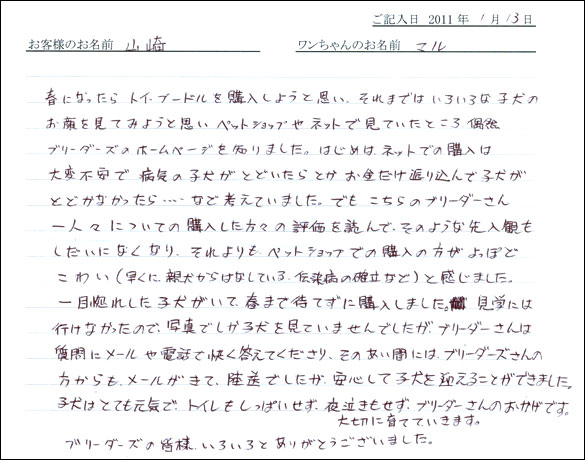 ご記入日 2011年 1月 13日
お客様のお名前 山崎 ワンちゃんのお名前 マル
春になったら トイ・プードルを購入しようと思い、それまでは いろいろな子犬の
お顔を見てみようと思い ペットショップや ネットで見ていたところ 偶然
ブリーダーズのホームページを知りました。はじめは、ネットでの購入は
大変不安で 病気の子犬がとどいたらとか お金だけ振り込んで子犬が
とどかなかったら…… など考えていました。でも こちらのブリーダーさん
一人々についての購入した方々の評価を読んで、そのような先入観も
しだいになくなり、それよりも、ペットショップでの購入の方がよっぽど
こわい(早くに、親犬からはなしている、伝染病の確立など)と感じました。
一目惚れした子犬がいて、春まで待てずに購入しました。見学には
行けなかったので、写真でしか子犬を見ていませんでしたが、ブリーダーさんは
質問にメールや電話で快く答えてくださり、そのあい間には、ブリーダーズさんの
方からも、メールがきて、陸送でしたが、安心して子犬を迎えることができました。
子犬はとても元気で、トイレもしっぱいせず、夜泣きもせず、ブリーダーさんのおかげです。
大切に育てていきます。
ブリーダーズの皆様、いろいろとありがとうございました。